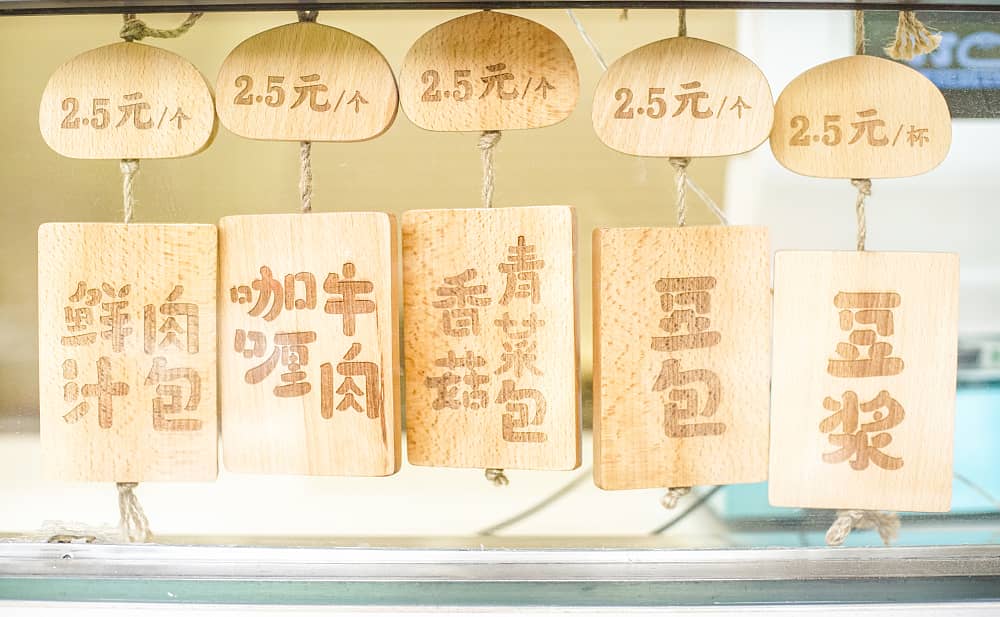 2.5元/个
鲜汁
肉包
2.5元/个
咖喱
牛肉
2.5元/个
香菇
青菜包
2.5元/个
豆包
2.5元/杯
豆浆